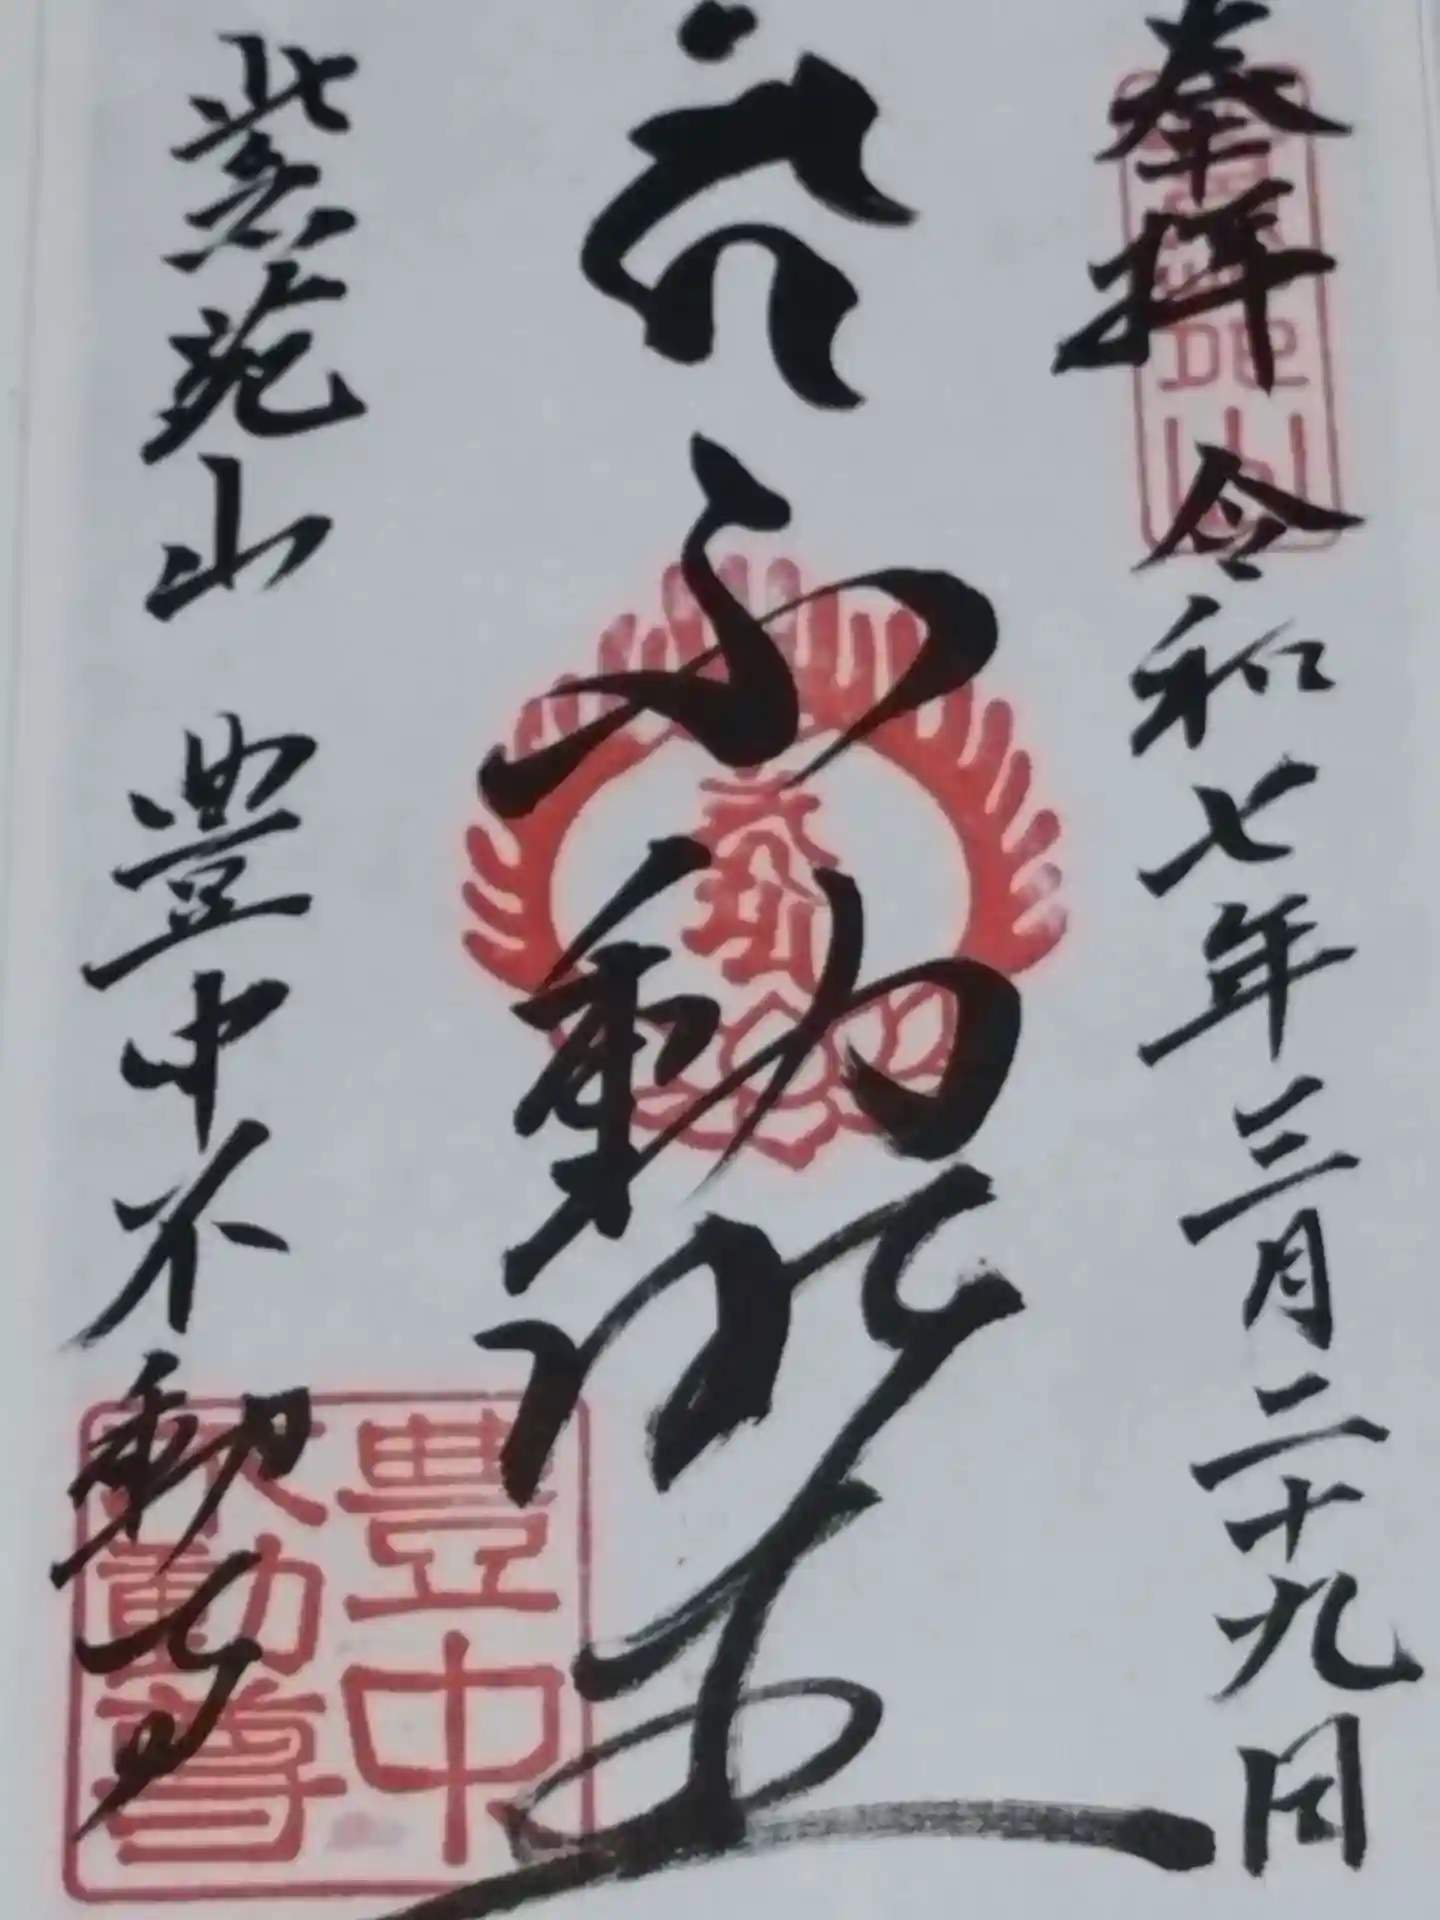 奉拝 令和七年三月二十九日
不動明王
紫苑山 豊中不動尊
豊中
不動尊